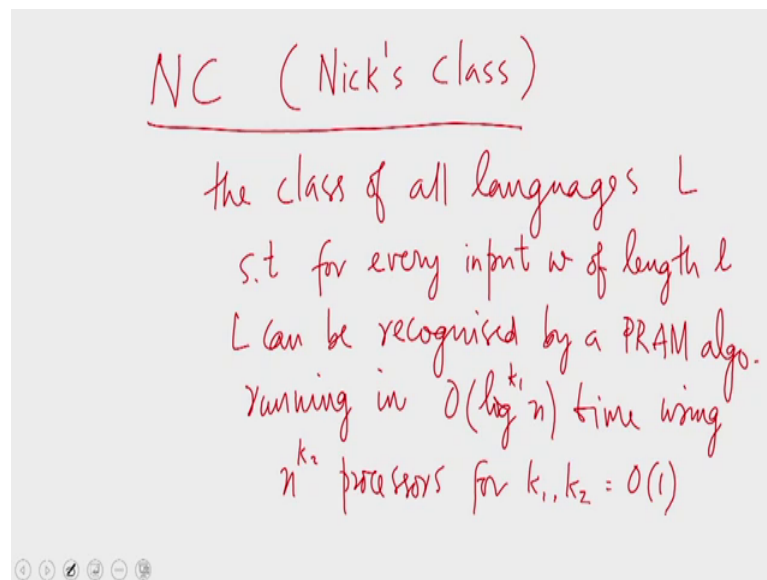 NC (Nick's class)
the class of all languages L
s.t for every input w of length l
L can be recognised by a PRAM algo.
running in O(log^k₁ n) time using
n^k₂ processors for k₁, k₂ = O(1)